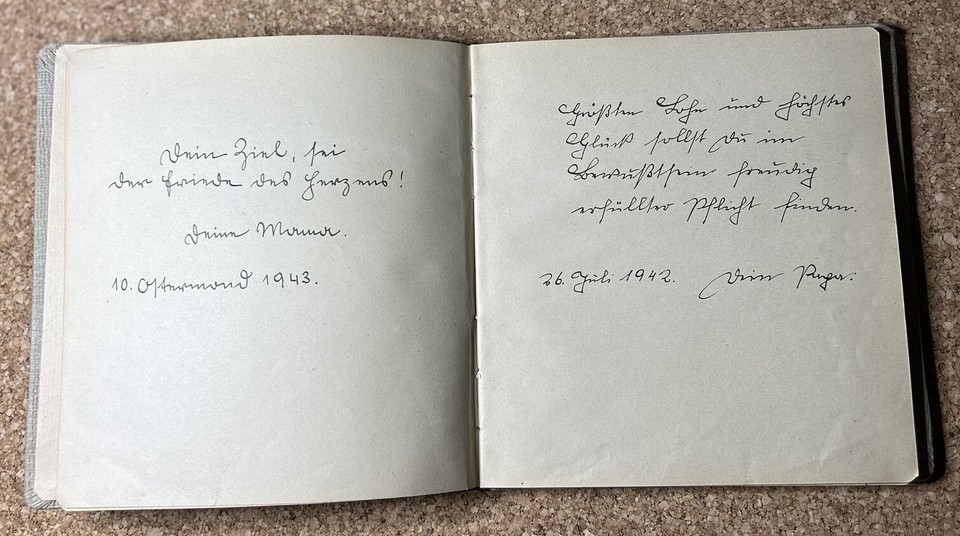 Dein Ziel, sei
der Friede des Herzens!
Deine Mama.
10. Ostermond 1943.
Größten Lohn und höchstes
Glück sollst Du im
Bewußtsein freudig
erfüllter Pflicht finden.
26. Juli 1942. Dein Papa.